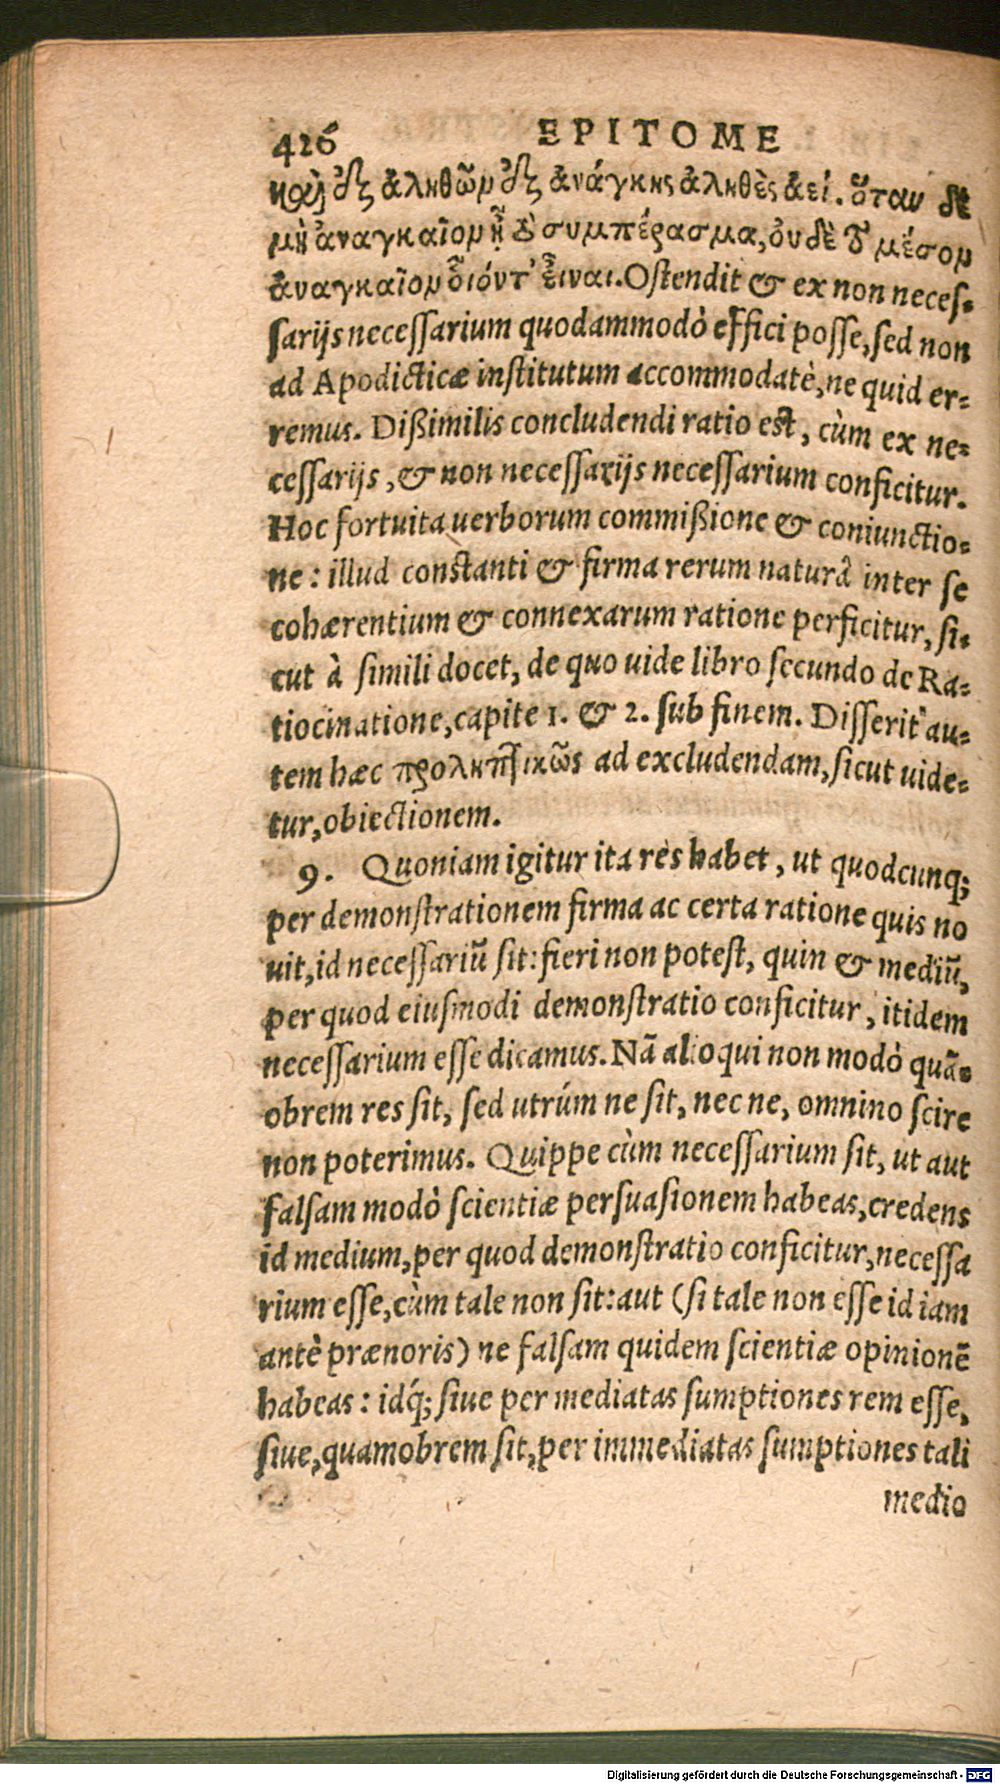 426 EPITOME
καὶ ἐξ ἀληθῶν ἐξ ἀνάγκης ἀληθὲς ἀεί. ὅταν δὲ
μὴ ἀναγκαῖον ᾖ τὸ συμπέρασμα, οὐδὲ τὸ μέσον
ἀναγκαῖον οἷόντ' εἶναι. Ostendit & ex non neces-
sarijs necessarium quodammodò effici posse, sed non
ad Apodicticæ institutum accommodatè, ne quid er-
remus. Dißimilis concludendi ratio est, cùm ex ne-
cessarijs, & non necessarijs necessarium conficitur.
Hoc fortuita uerborum commißione & coniunctio-
ne: illud constanti & firma rerum naturâ inter se
cohærentium & connexarum ratione perficitur, si-
cut à simili docet, de quo uide libro secundo de Ra-
tiocinatione, capite 1. & 2. sub finem. Disserit au-
tem hæc προληπτικῶς ad excludendam, sicut uide-
tur, obiectionem.
9. Quoniam igitur ita res habet, ut quodcunq;
per demonstrationem firma ac certa ratione quis no
uit, id necessariū sit: fieri non potest, quin & mediū,
per quod eiusmodi demonstratio conficitur, itidem
necessarium esse dicamus. Nā alioqui non modò quā-
obrem res sit, sed utrúm ne sit, nec ne, omnino scire
non poterimus. Quippe cùm necessarium sit, ut aut
falsam modò scientiæ persuasionem habeas, credens
id medium, per quod demonstratio conficitur, necessa
rium esse, cùm tale non sit: aut (si tale non esse id iam
antè prænoris) ne falsam quidem scientiæ opinionē
habeas: idq́; siue per mediatas sumptiones rem esse,
siue, quamobrem sit, per immediatas sumptiones tali
medio
Digitalisierung gefördert durch die Deutsche Forschungsgemeinschaft - DFG